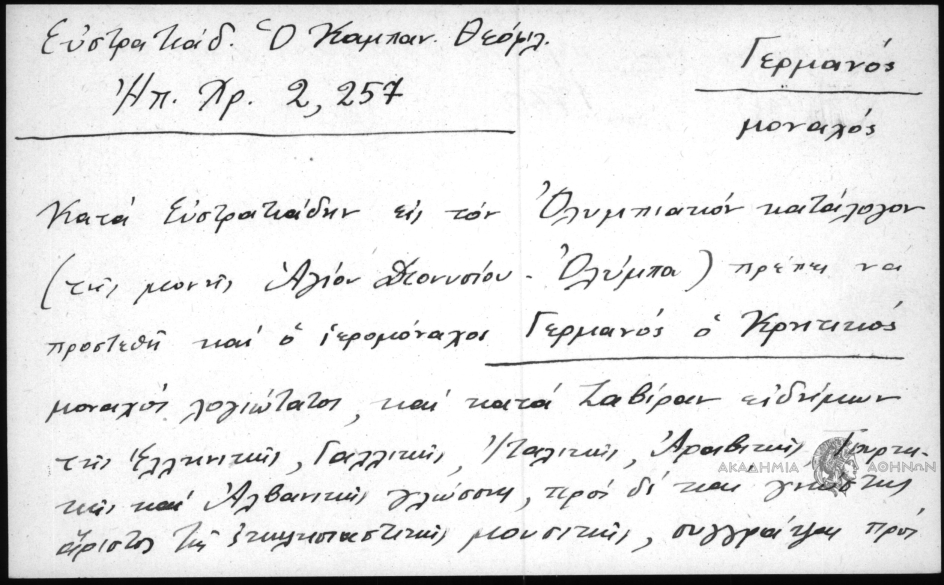 Εὐστρατιάδ. Ὁ Καμπαν. Θεόφιλ.
Ἠπ. Χρ. 2, 257
Γερμανός
μοναχός
Κατά Εὐστρατιάδην εἰς τόν Ὀλυμπιακόν κατάλογον
(τῆς μονῆς Ἁγίου Διονυσίου - Ὀλύμπου) πρέπει να
προστεθῆ καί ὁ ἱερομόναχος Γερμανός ὁ Κρητικός
μοναχός λογιώτατος, καί κατά Ζαβίραν εἰδήμων
τῆς Ἑλληνικῆς, Γαλλικῆς, Ἰταλικῆς, Ἀραβικῆς Τουρκι-
κῆς καί Ἀλβανικῆς γλώσσης, πρός δέ καί γνώστης
ἄριστος τῆς ἐκκλησιαστικῆς μουσικῆς, συγγράψας πρός
ΑΚΑΔΗΜΙΑ ΑΘΗΝΩΝ